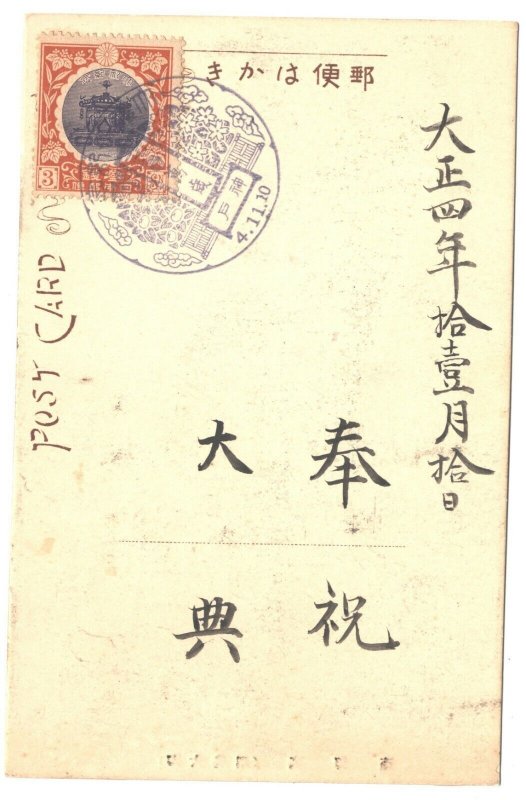 郵便はかき
大正四年拾壹月拾日
奉祝
大典
POST CARD
神戸
4.11.10
3